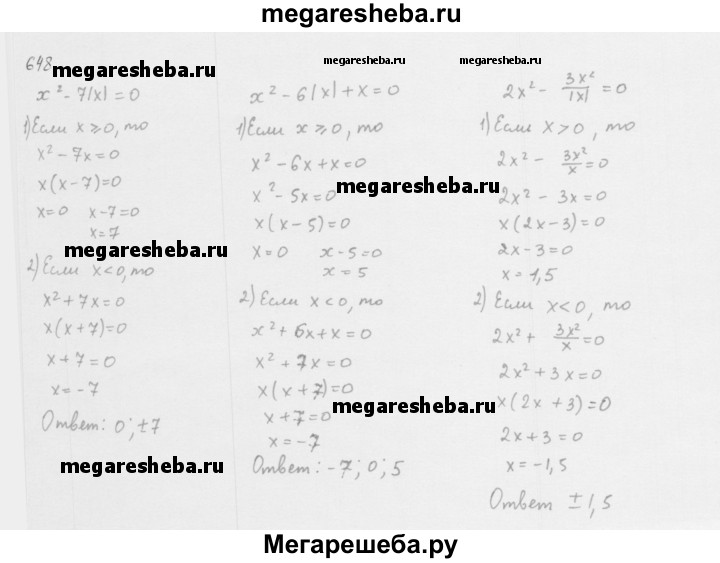 megaresheba.ru
648
megaresheba.ru
x² - 7|x| = 0
1) Если x ≥ 0, то
x² - 7x = 0
x(x - 7) = 0
x = 0 x - 7 = 0
x = 7
megaresheba.ru
2) Если x < 0, то
x² + 7x = 0
x(x + 7) = 0
x + 7 = 0
x = -7
Ответ: 0; ±7
megaresheba.ru
megaresheba.ru
x² - 6|x| + x = 0
1) Если x ≥ 0, то
x² - 6x + x = 0
megaresheba.ru
x² - 5x = 0
x(x - 5) = 0
x = 0 x - 5 = 0
x = 5
2) Если x < 0, то
x² + 6x + x = 0
x² + 7x = 0
x(x + 7) = 0
megaresheba.ru
x + 7 = 0
x = -7
Ответ: -7; 0; 5
megaresheba.ru
2x² - 3x²/|x| = 0
1) Если x > 0, то
2x² - 3x²/x = 0
2x² - 3x = 0
x(2x - 3) = 0
2x - 3 = 0
x = 1,5
2) Если x < 0, то
2x² + 3x²/x = 0
2x² + 3x = 0
x(2x + 3) = 0
2x + 3 = 0
x = -1,5
Ответ ±1,5
Мегарешеба.ру